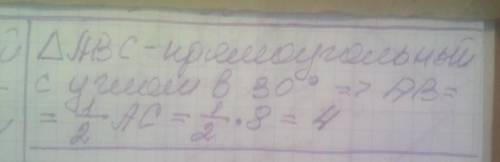 △ABC - прямоугольный
с углом в 30° => AB =
= 1/2 AC = 1/2 · 8 = 4